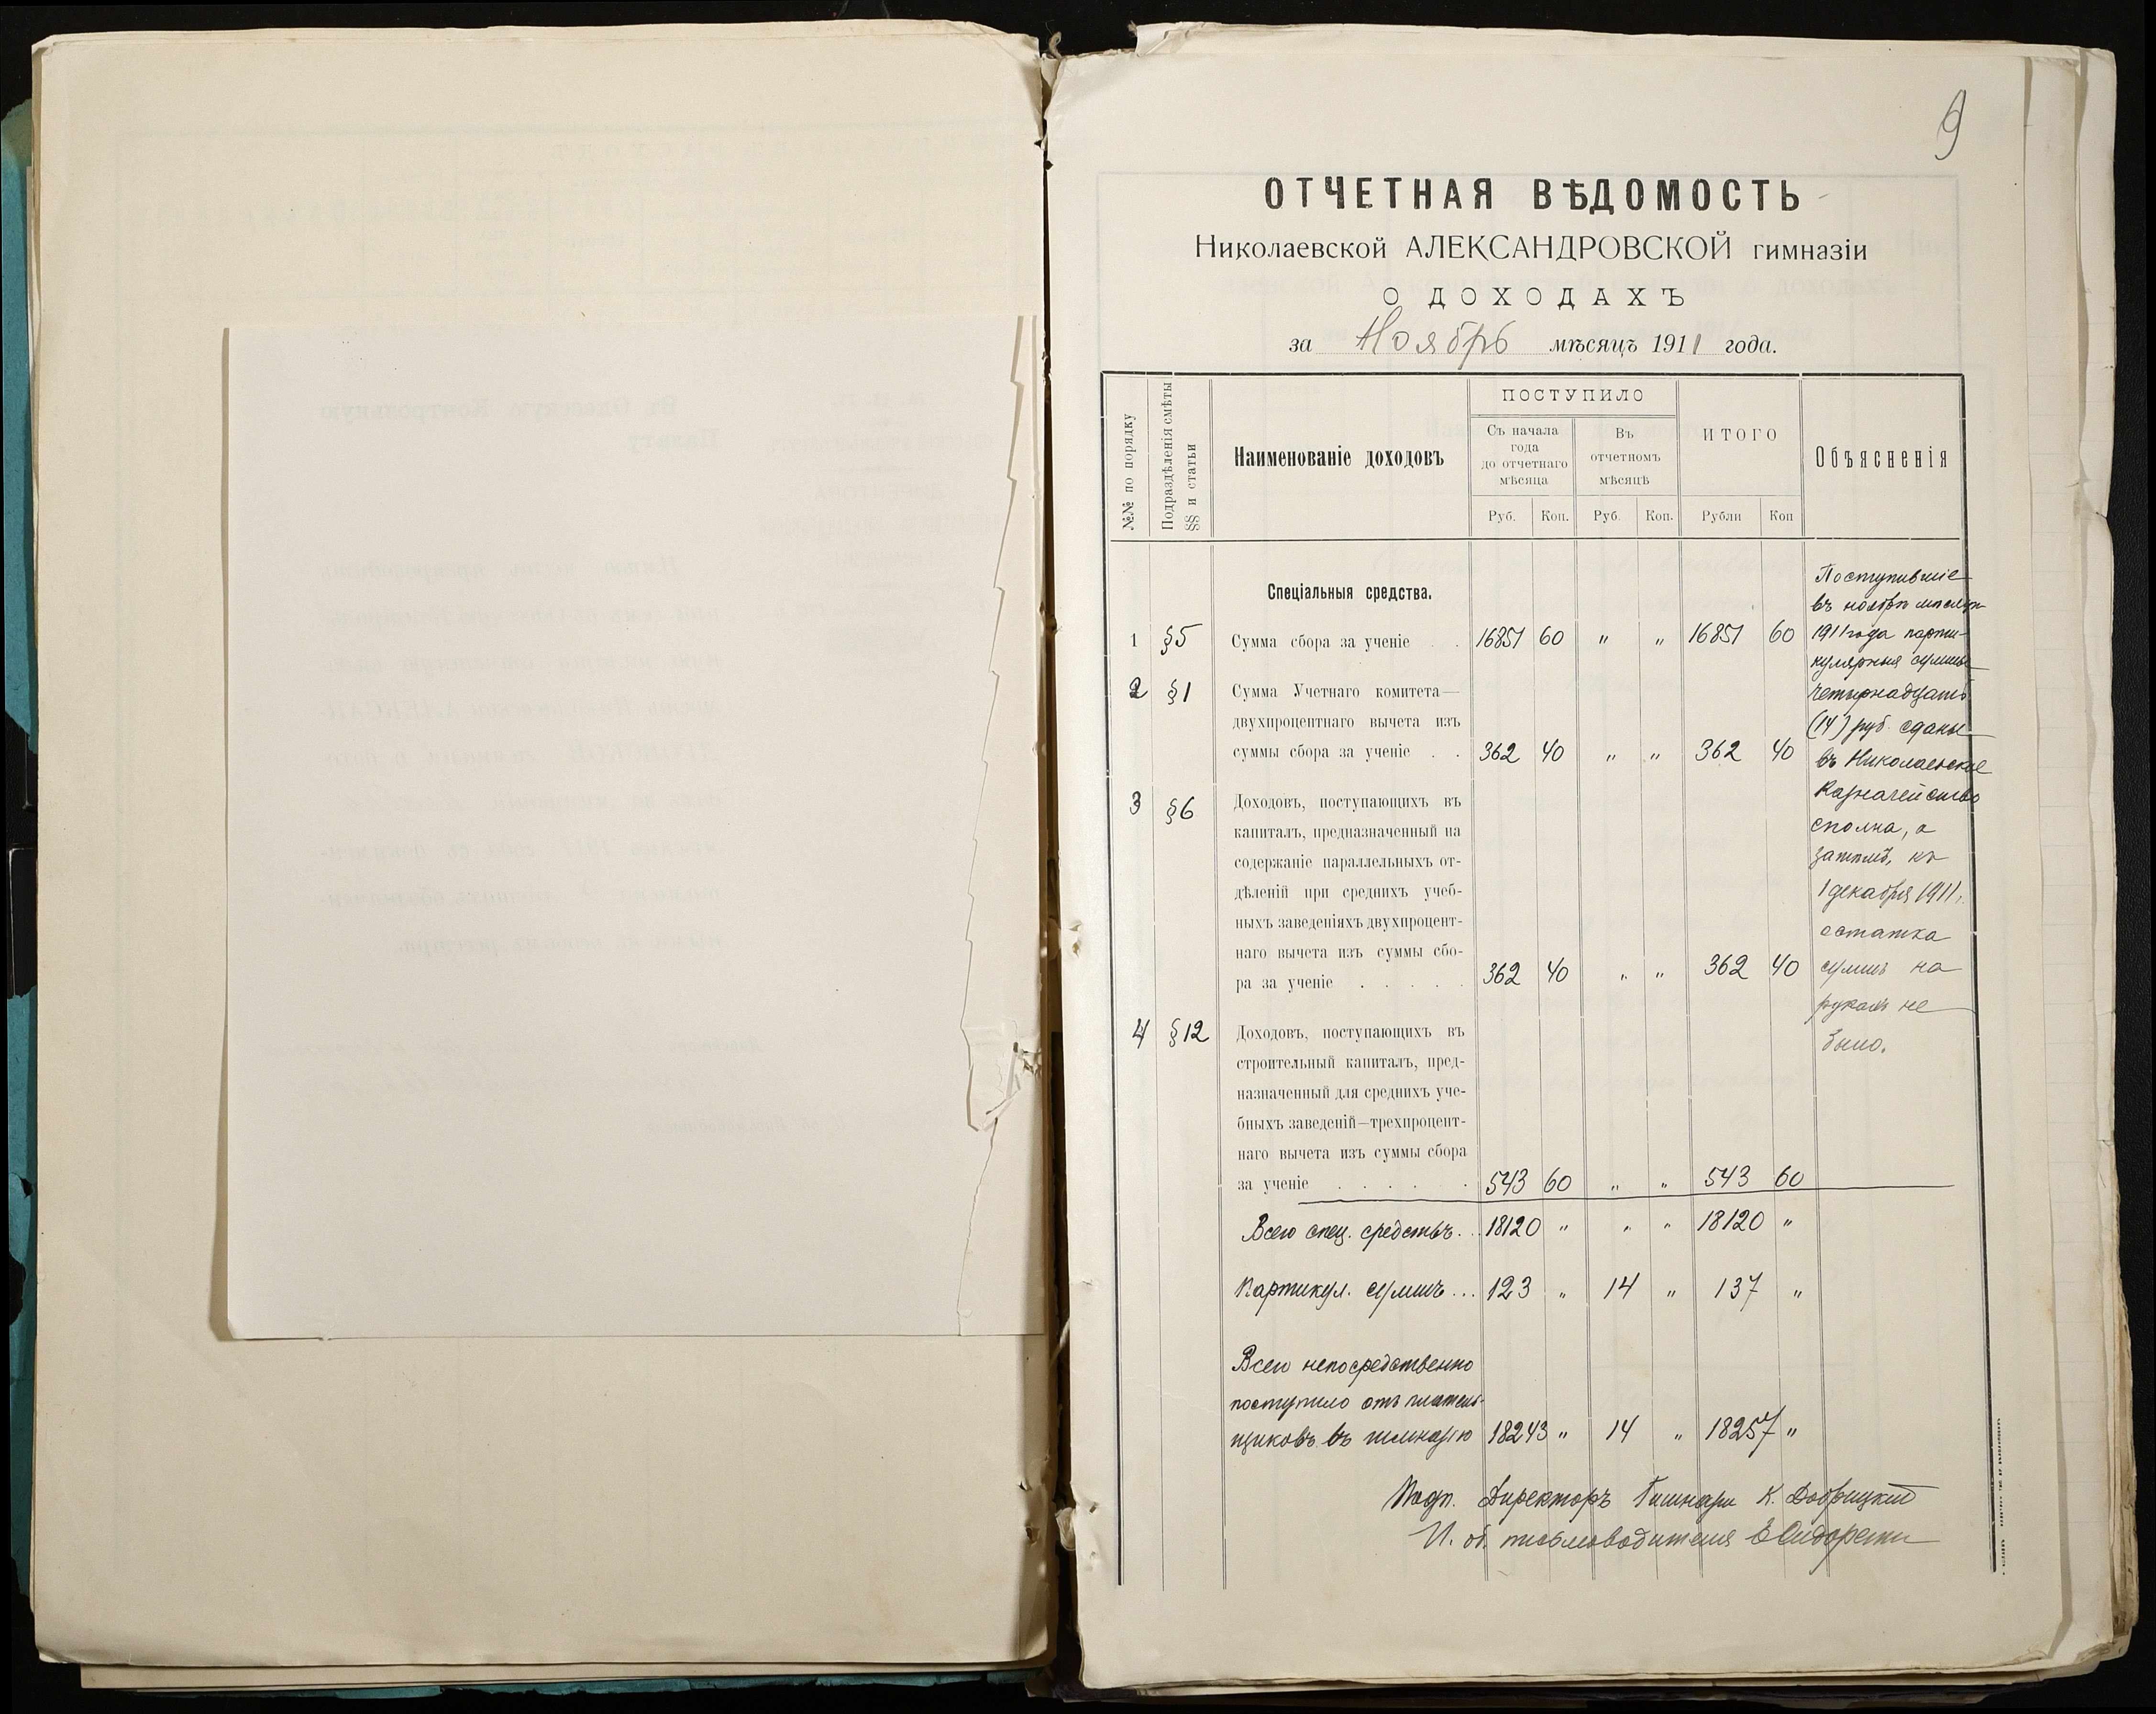 9
ОТЧЕТНАЯ ВѢДОМОСТЬ
Николаевской АЛЕКСАНДРОВСКОЙ гимназіи
О ДОХОДАХЪ
за Ноябрь мѣсяцъ 1911 года.
№№ по порядку
Подраздѣленія смѣты
§§ и статьи
Наименованіе доходовъ
ПОСТУПИЛО
Съ начала
года
до отчетнаго
мѣсяца
Въ
отчетномъ
мѣсяцѣ
ИТОГО
Объясненія
Руб. Коп. Руб. Коп. Рубли Коп
Спеціальныя средства.
1 §5 Сумма сбора за ученіе . . 16851 60 " " 16851 60
2 §1 Сумма Учетнаго комитета—
двухпроцентнаго вычета изъ
суммы сбора за ученіе . . 362 40 " " 362 40
3 §6 Доходовъ, поступающихъ въ
капиталъ, предназначенный на
содержаніе параллельныхъ от-
дѣленій при среднихъ учеб-
ныхъ заведеніяхъ двухпроцент-
наго вычета изъ суммы сбо-
ра за ученіе . . . . . 362 40 " " 362 40
4 §12 Доходовъ, поступающихъ въ
строительный капиталъ, пред-
назначенный для среднихъ уче-
бныхъ заведеній—трехпроцент-
наго вычета изъ суммы сбора
за ученіе . . . . . . 543 60 " " 543 60
Всего спец. средствъ . . 18120 " " " 18120 "
Партикул. суммъ ... 123 " 14 " 137 "
Всего непосредственно
поступило отъ платель-
щиковъ въ гимназію 18243 " 14 " 18257 "
Поступившіе
въ ноябрѣ мѣсяцѣ
1911 года парти-
кулярныя суммы
четырнадцать
(14) руб. сданы
въ Николаевское
Казначейство
сполна, а
затѣмъ, къ
1 декабря 1911 г.
остатка
суммъ на
рукахъ не
было.
Подп. Директоръ Гимназіи К. Добрицкій
И. об. письмоводителя